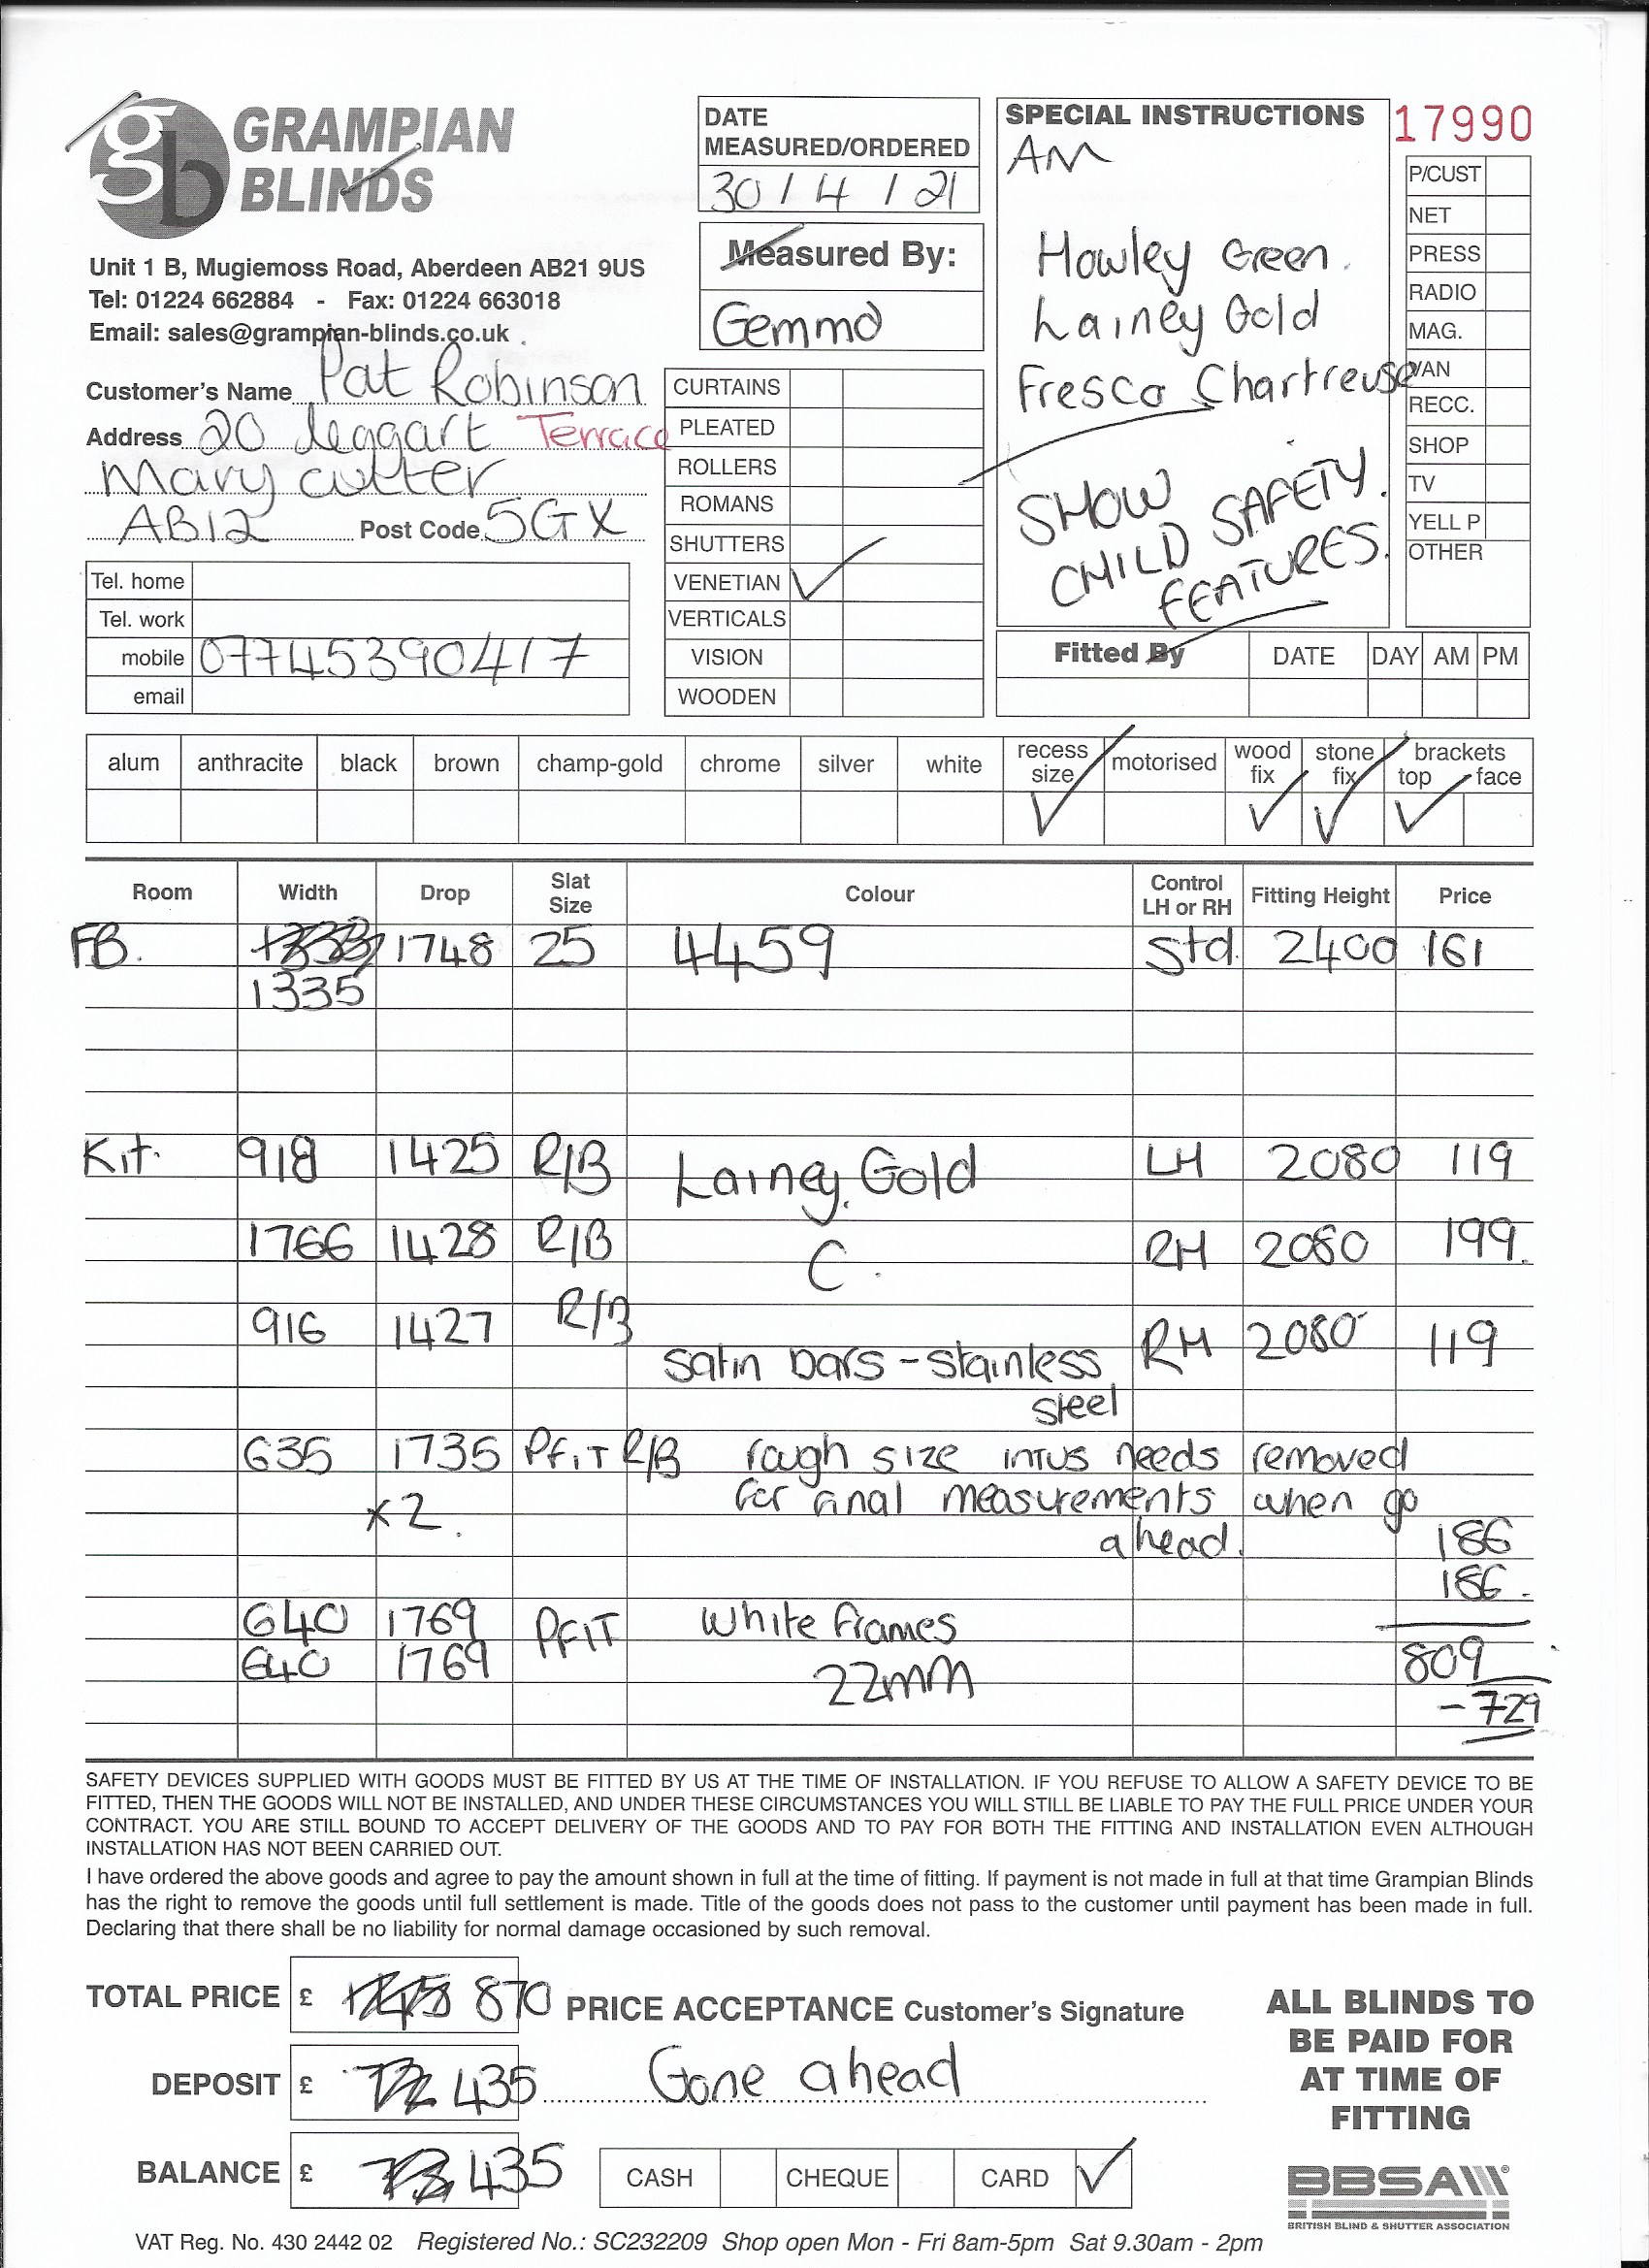 gb GRAMPIAN
BLINDS
Unit 1 B, Mugiemoss Road, Aberdeen AB21 9US
Tel: 01224 662884 - Fax: 01224 663018
Email: sales@grampian-blinds.co.uk
Customer's Name Pat Robinson
Address 20 Leggart Terrace
Mary culter
AB12 Post Code 5GX
Tel. home
Tel. work
mobile 07745390417
email
DATE
MEASURED/ORDERED
30/4/21
Measured By:
Gemma
CURTAINS
PLEATED
ROLLERS
ROMANS
SHUTTERS
VENETIAN ✓
VERTICALS
VISION
WOODEN
SPECIAL INSTRUCTIONS
AM
Howley Green.
Lainey Gold
Fresco Chartreuse
SHOW
CHILD SAFETY.
FEATURES.
17990
P/CUST
NET
PRESS
RADIO
MAG.
VAN
RECC.
SHOP
TV
YELL P
OTHER
Fitted By DATE DAY AM PM
alum anthracite black brown champ-gold chrome silver white recess size motorised wood fix stone fix brackets top face
✓ ✓ ✓ ✓
Room Width Drop Slat Size Colour Control LH or RH Fitting Height Price
FB. 1748 25 4459 Std. 2400 161
1335
Kit. 918 1425 R/B Lainey Gold LH 2080 119
1766 1428 R/B C. RH 2080 199.
916 1427 R/B RH 2080 119
Satin bars - Stainless
Steel
635 1735 PFiT R/B rough size intus needs removed
x2. for final measurements when go
ahead. 186
186.
640 1769 PFIT White frames
640 1769 22mm 809
- 729
SAFETY DEVICES SUPPLIED WITH GOODS MUST BE FITTED BY US AT THE TIME OF INSTALLATION. IF YOU REFUSE TO ALLOW A SAFETY DEVICE TO BE
FITTED, THEN THE GOODS WILL NOT BE INSTALLED, AND UNDER THESE CIRCUMSTANCES YOU WILL STILL BE LIABLE TO PAY THE FULL PRICE UNDER YOUR
CONTRACT. YOU ARE STILL BOUND TO ACCEPT DELIVERY OF THE GOODS AND TO PAY FOR BOTH THE FITTING AND INSTALLATION EVEN ALTHOUGH
INSTALLATION HAS NOT BEEN CARRIED OUT.
I have ordered the above goods and agree to pay the amount shown in full at the time of fitting. If payment is not made in full at that time Grampian Blinds
has the right to remove the goods until full settlement is made. Title of the goods does not pass to the customer until payment has been made in full.
Declaring that there shall be no liability for normal damage occasioned by such removal.
TOTAL PRICE £ 870 PRICE ACCEPTANCE Customer's Signature
DEPOSIT £ 435 Gone ahead
BALANCE £ 435 CASH CHEQUE CARD ✓
ALL BLINDS TO
BE PAID FOR
AT TIME OF
FITTING
BBSA
BRITISH BLIND & SHUTTER ASSOCIATION
VAT Reg. No. 430 2442 02 Registered No.: SC232209 Shop open Mon - Fri 8am-5pm Sat 9.30am - 2pm